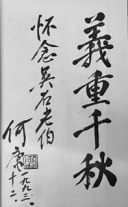 義重千秋
怀念吳石老伯
何康
一九九三.
十二.